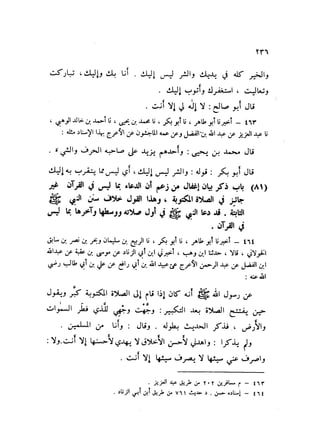 ٢٣٦
والخير كله في يديك والشر ليس إليك ، أنا بك وإليك ، تباركت
وتعاليت ، أستغفرك وأتوب إليك .
قال أبو صالح : لا إله إلا أنت .
٤٦٣ — أخبرنا أبو طاهر ، نا أبو بكر ، نا محمد بن يحيى ، نا أحمد بن خالد الوهبي ،
نا عبد العزيز عن عبد الله بن الفضل وعن عمه الماجشون عن الأعرج بهذا الإسناد مثله :
قال محمد بن يحيى : وأحدهم يزيد على صاحبه الحرف والشيء .
قال أبو بكر : قوله : والشر ليس إليك ، أي ليس مما يتقرب به إليك .
(٨١) باب ذكر بيان إغفال من زعم أن الدعاء بما ليس في القرآن غير
جائز في الصلاة المكتوبة ، وهذا القول خلاف سنن النبي ﷺ
الثابتة . قد دعا النبي ﷺ في أول صلاته ووسطها وآخرها بما ليس
في القرآن .
٤٦٤ — أخبرنا أبو طاهر ، نا أبو بكر ، نا الربيع بن سليمان وبحر بن نصر بن سابق
الخولاني ، قالا ، حدثنا ابن وهب ، أخبرني ابن أبي الزناد عن موسى بن عقبة عن عبد الله
ابن الفضل عن عبد الرحمن الأعرج عن عبيد الله بن أبي رافع عن علي بن أبي طالب رضي
الله عنه :
عن رسول الله ﷺ أنه كان إذا قام إلى الصلاة المكتوبة كبر ويقول
حين يفتتح الصلاة بعد التكبير : وجهت وجهي للذي فطر السموات
والأرض ، فذكرا الحديث بطوله . وقالا : وأنا من المسلمين .
ولم يذكرا : واهدني لأحسن الأخلاق لا يهدي لأحسنها إلا أنت : ولا :
واصرف عني سيئها لا يصرف سيئها إلا أنت .
٤٦٣ — م مسافرين ٢٠٢ من طريق عبد العزيز .
٤٦٤ — إسناده حسن . د حديث ٧٦١ من طريق ابن أبي الزناد .